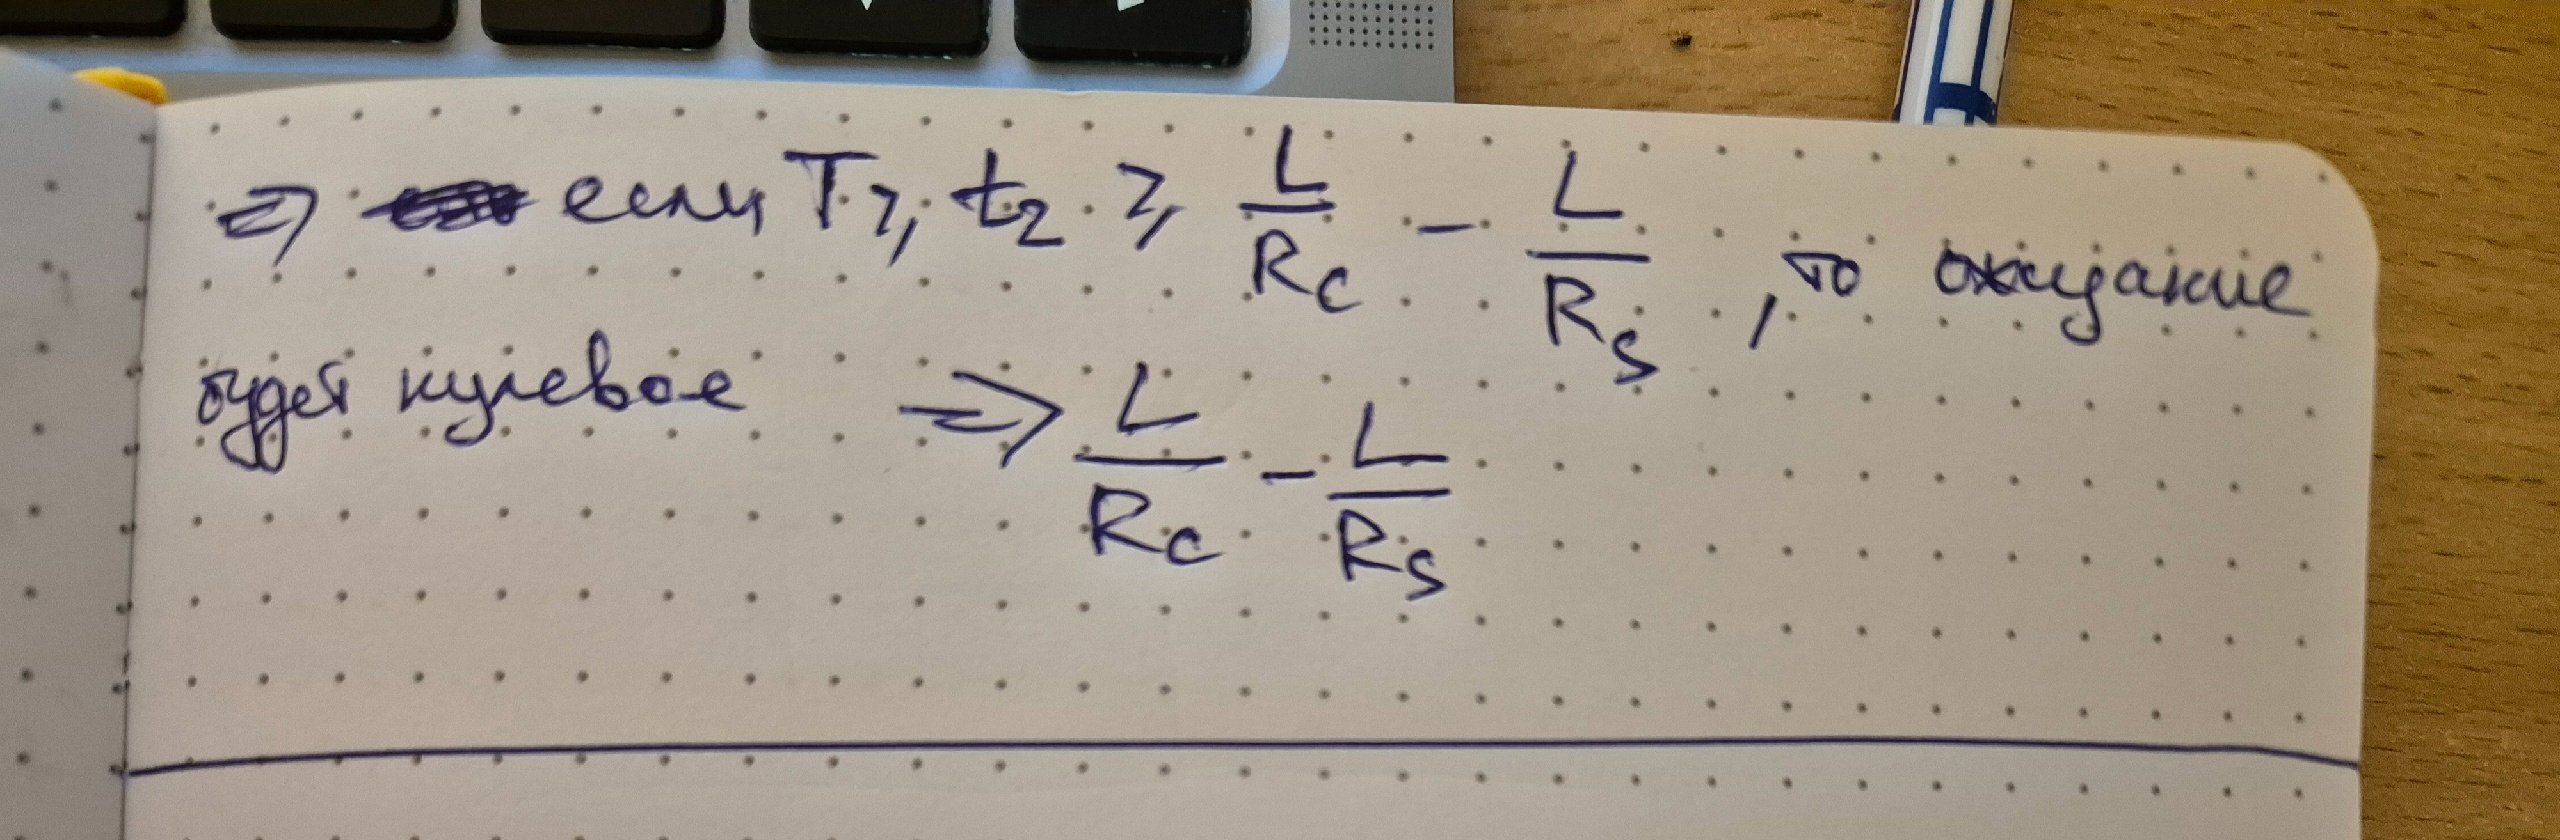 ⇒ если T ≥ t₂ ≥ L/R_c - L/R_s, то ожидание
будет нулевое ⇒ L/R_c - L/R_s